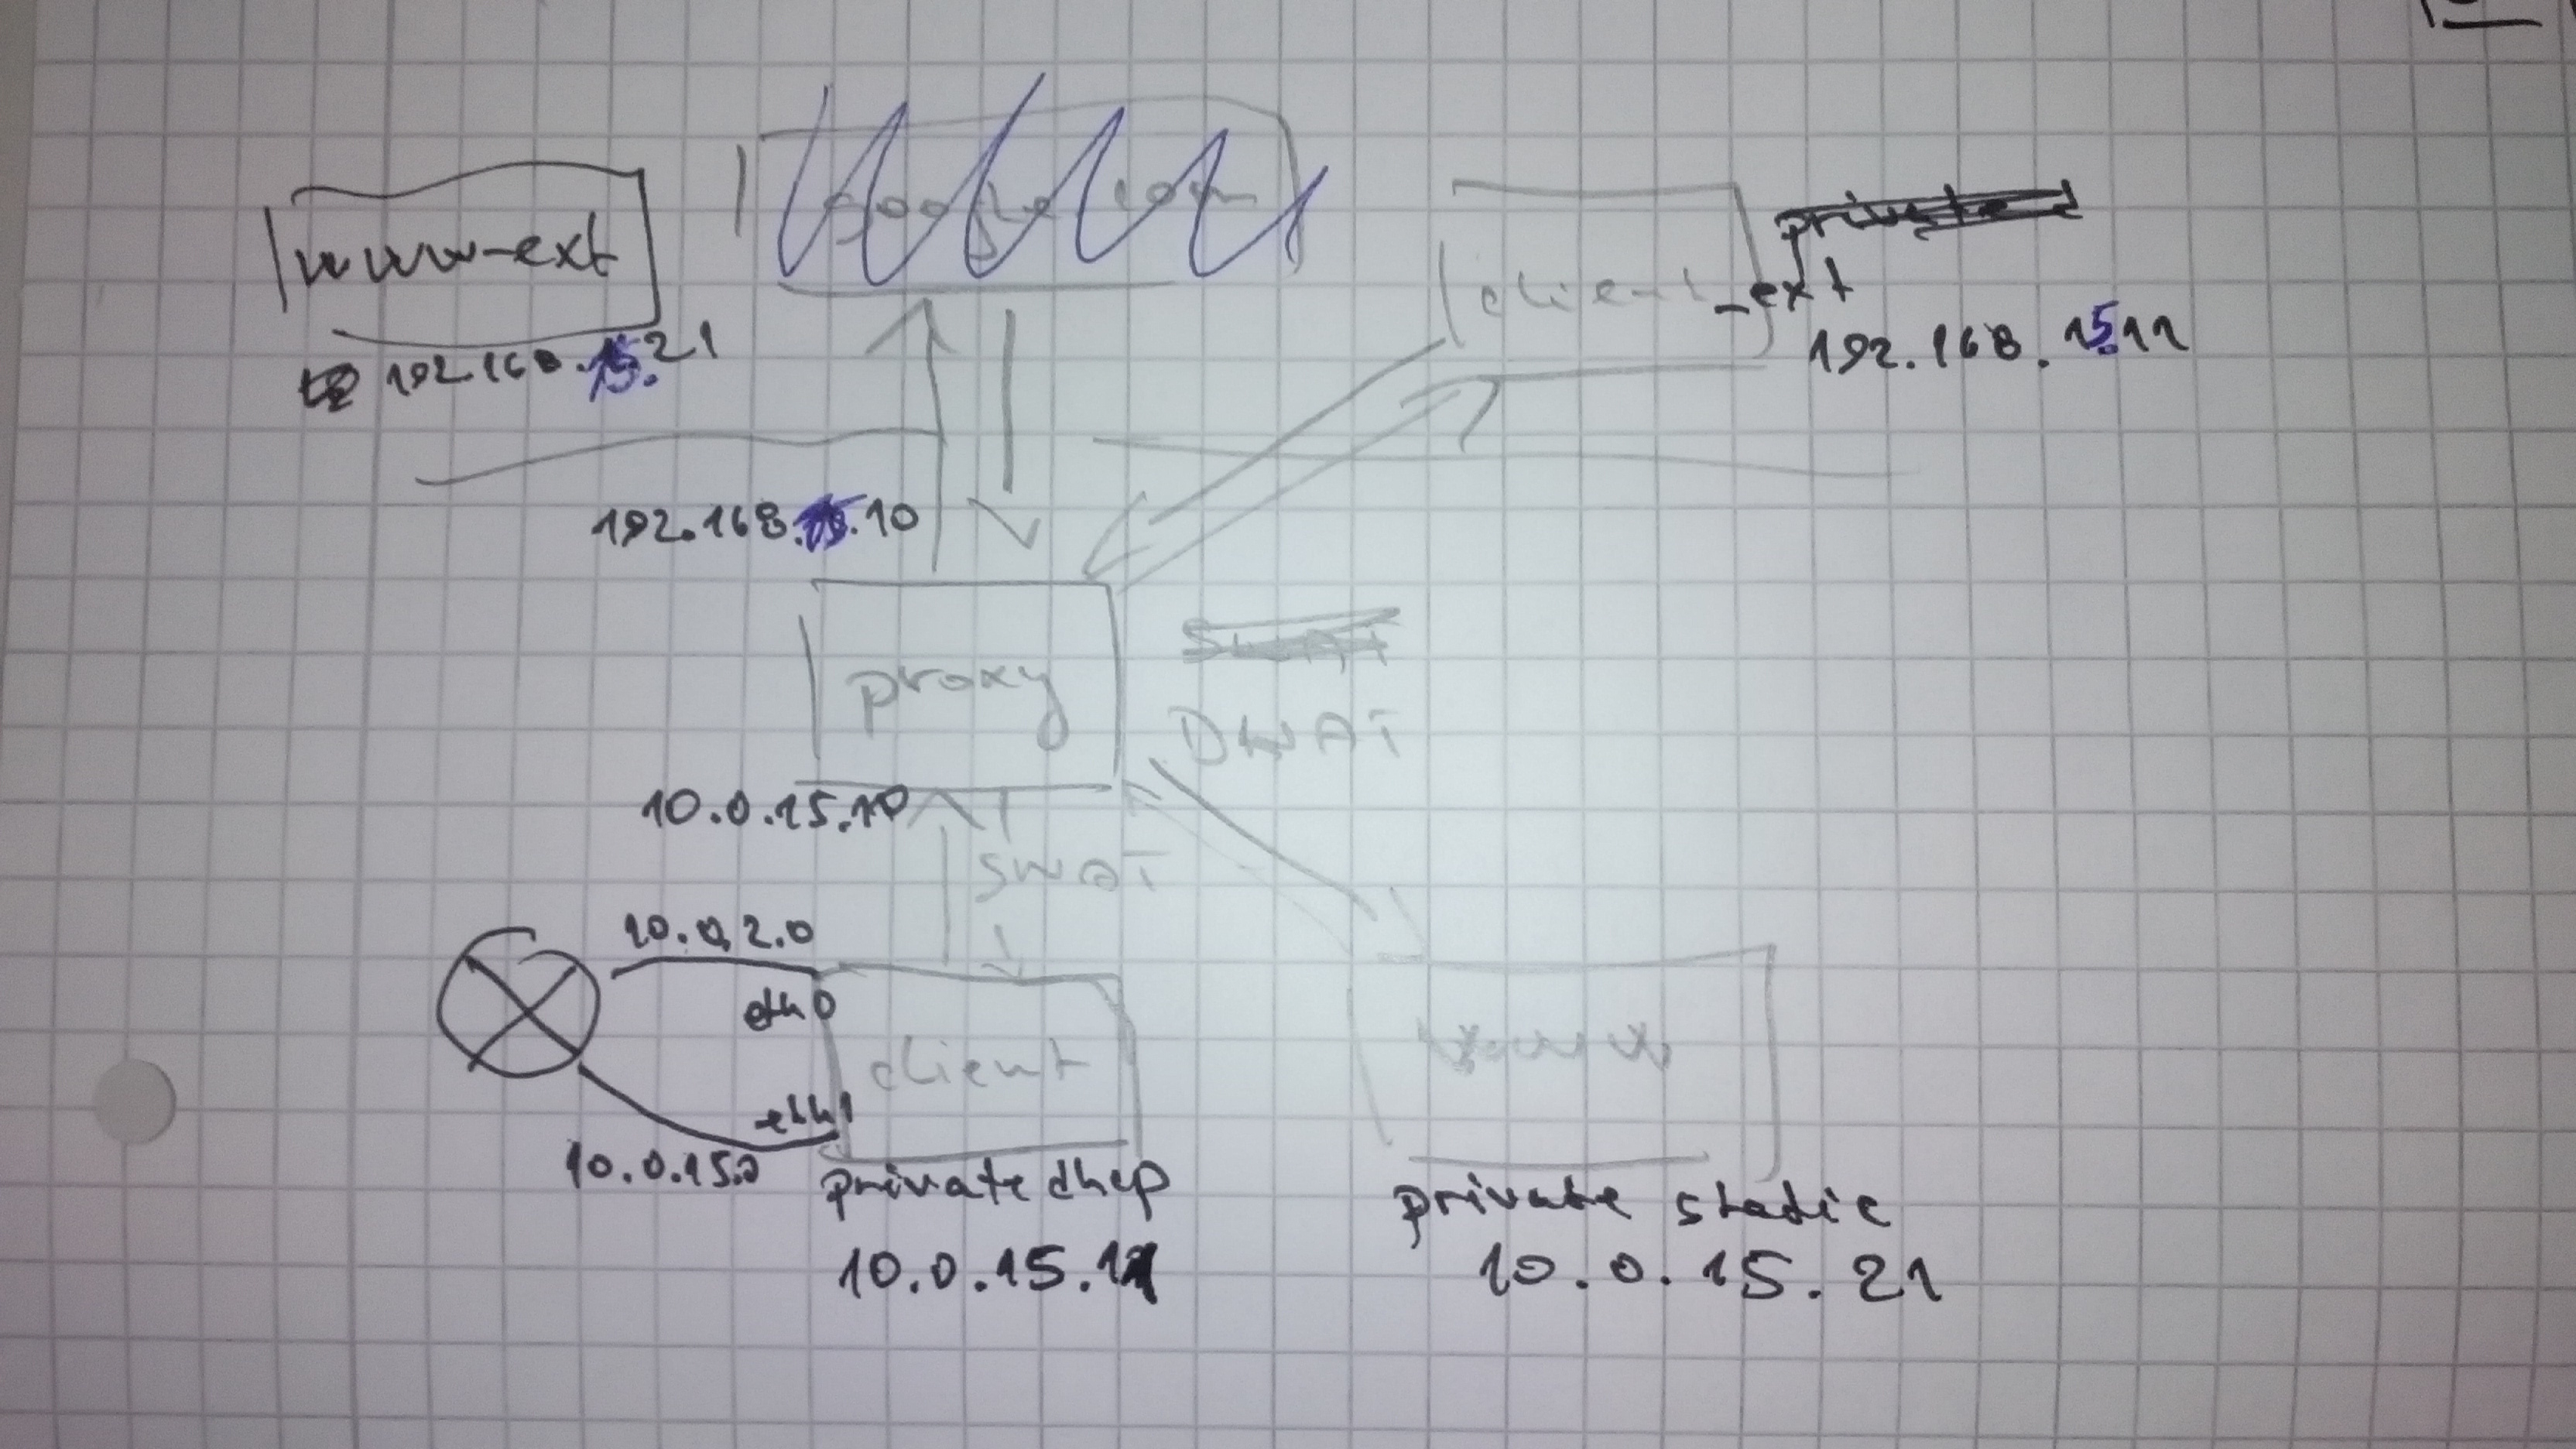 www-ext
192.168.15.21
google.com
client_ext
private
192.168.15.11
192.168.15.10
proxy
SNAT
DNAT
10.0.15.10
SNAT
10.0.2.0
eth0
client
eth1
10.0.15.0
private dhcp
10.0.15.11
www
private static
10.0.15.21